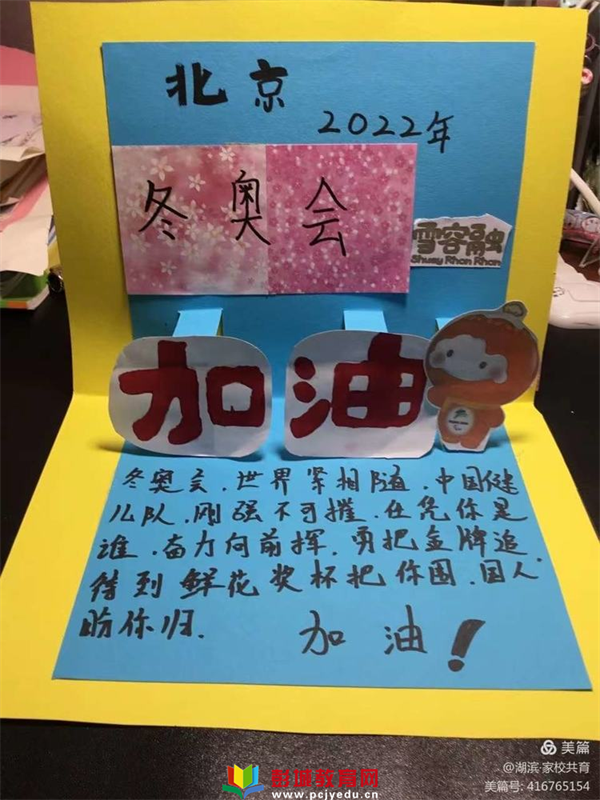 北京
2022年
冬奥会
雪容融
Shuey Rhon Rhon
加油
冬奥会.世界紧相随.中国健
儿队.刚强不可摧.任凭你是
谁.奋力向前挥.勇把金牌追.
待到鲜花奖杯把你围.国人
盼你归.
加油!
美篇
@湖滨·家校共育
美篇号: 416765154
彭城教育网
www.pcjyedu.cn